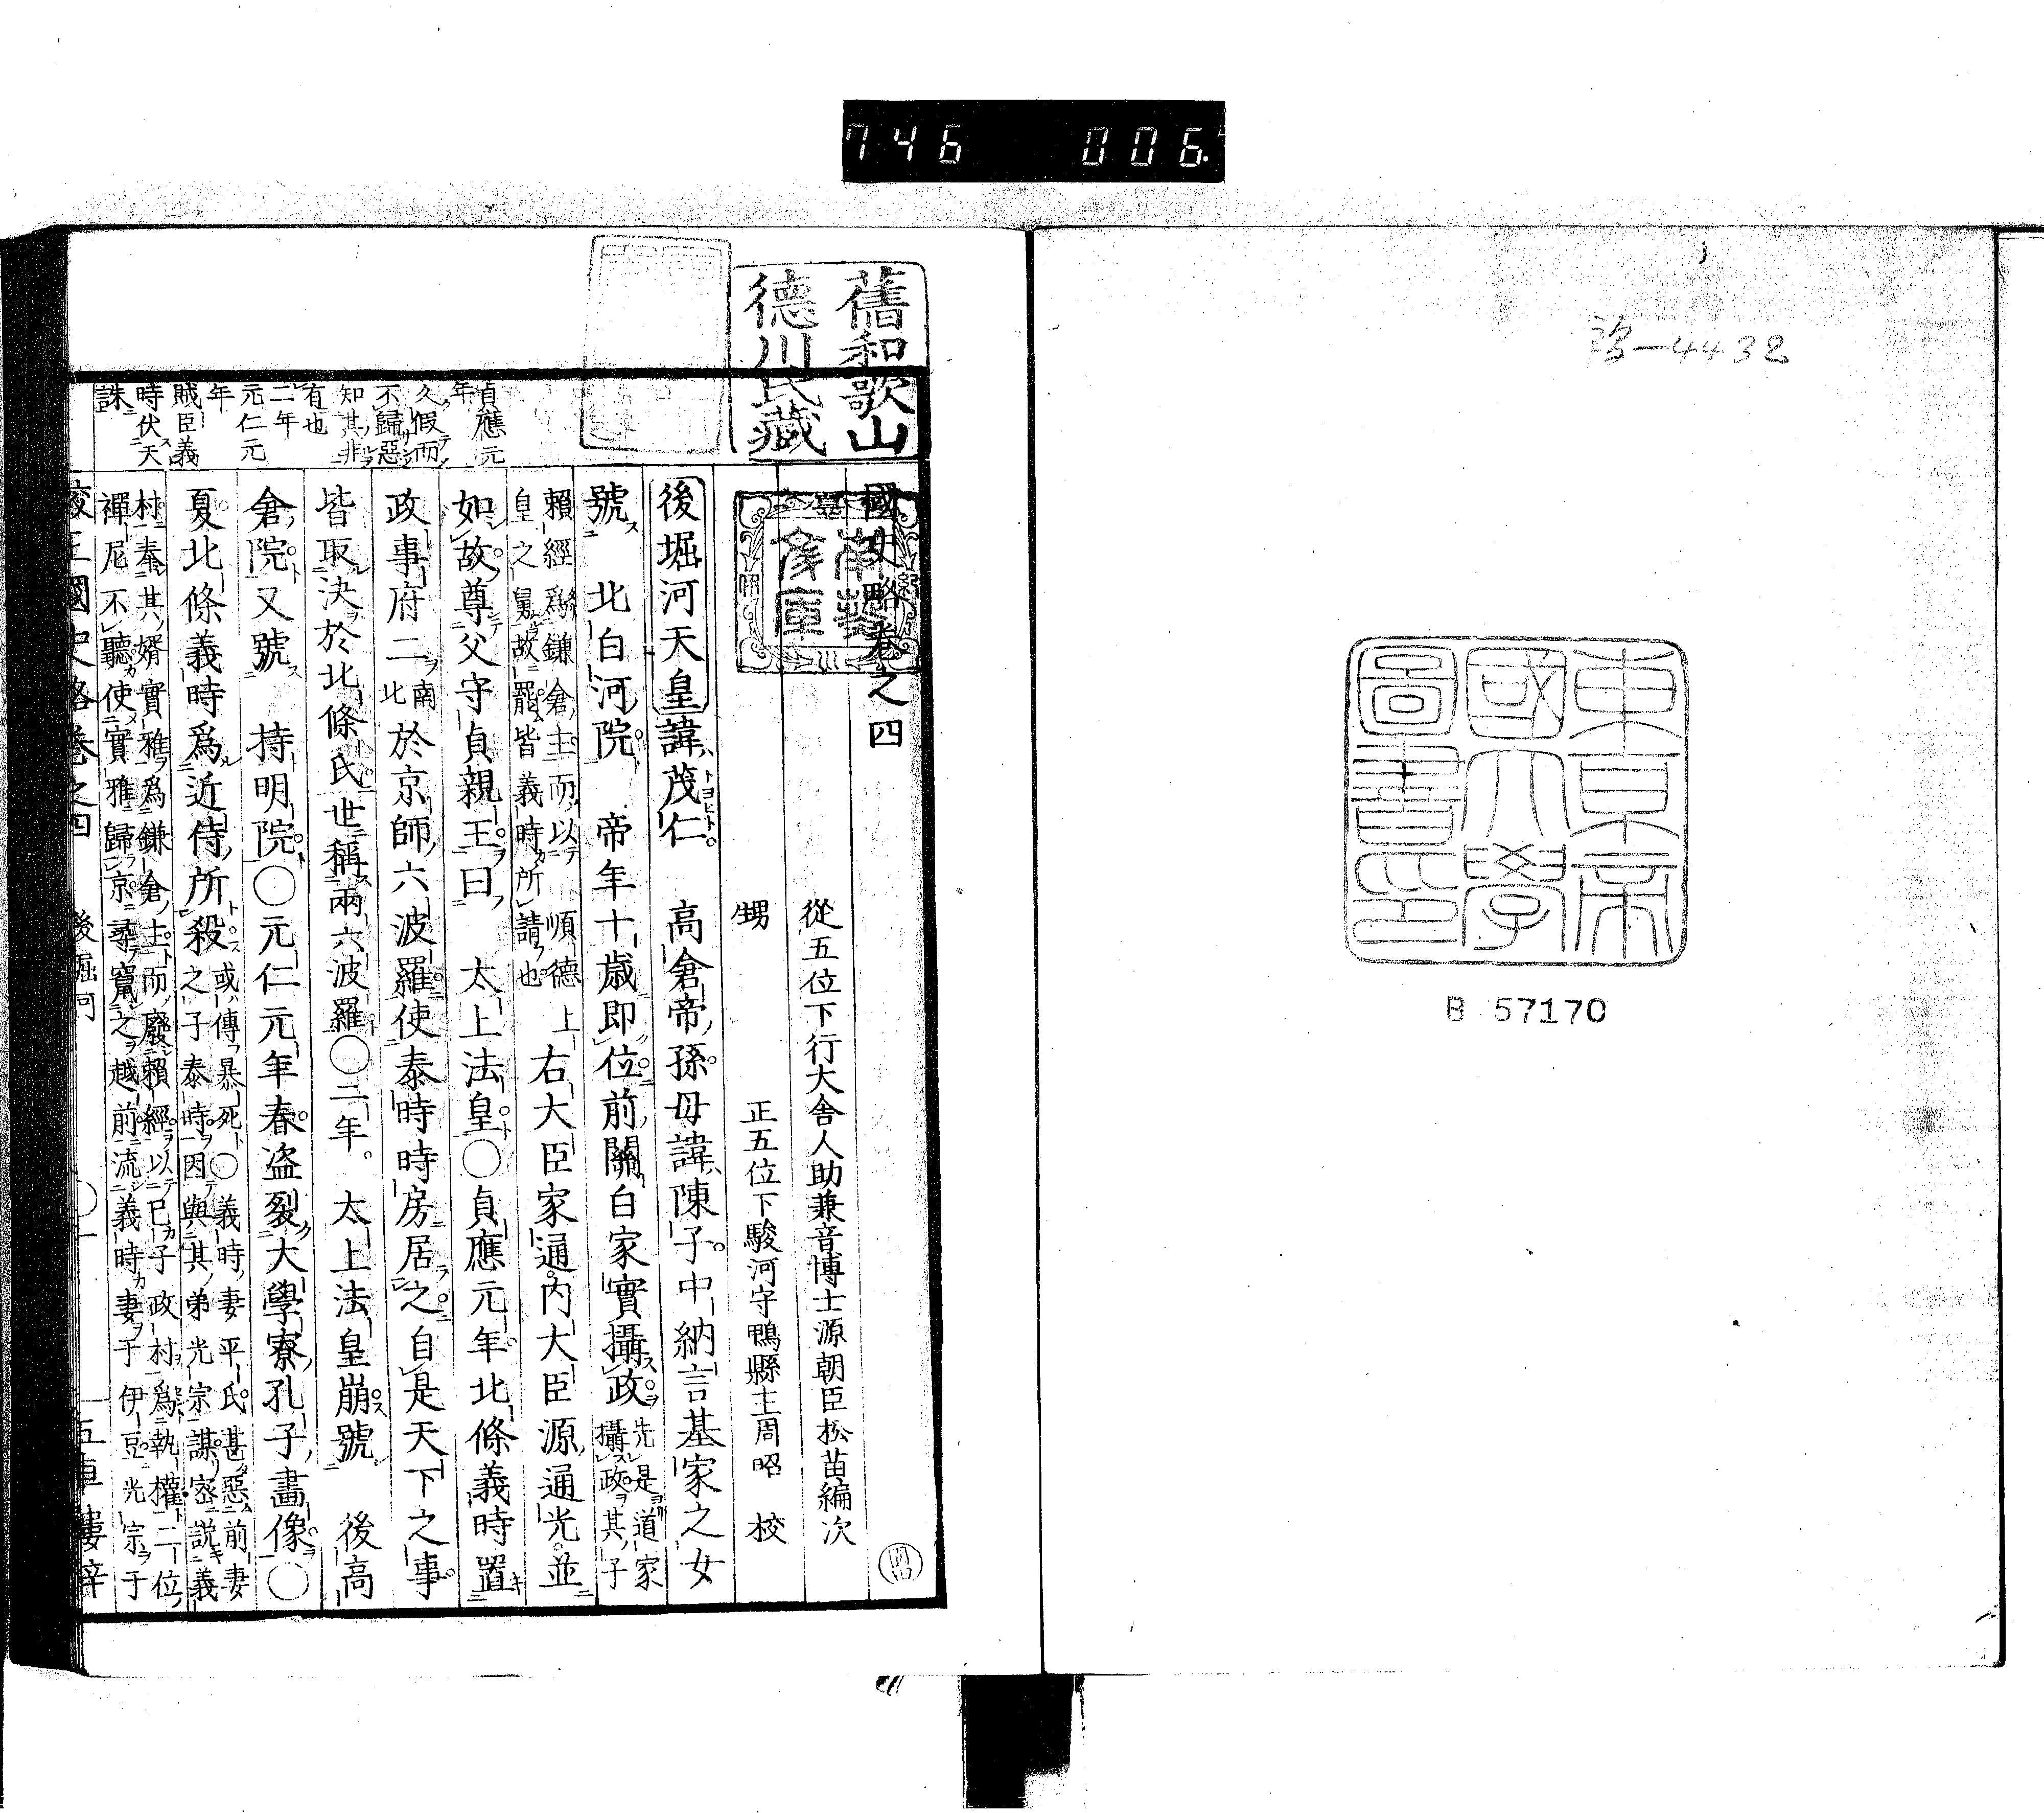 746 006
乃-4432
東京帝
國大學
圖書印
B 57170
舊和歌山
德川氏藏
南葵
文庫
國史略卷之四
從五位下行大舍人助兼音博士源朝臣松苗編次
甥 正五位下駿河守鴨縣主周昭 校
後堀河天皇諱茂仁 高倉帝孫母諱陳子中納言基家之女
號 北白河院 帝年十歲即位前關白家實攝政先是道家
攝政其子
賴經爲鎌倉主而以 順德上
皇之舅故罷皆義時所請也
右大臣家通內大臣源通光並
如故尊父守貞親王曰 太上法皇○貞應元年北條義時置
政事府二南
北於京師六波羅使泰時時房居之自是天下之事
皆取決於北條氏世稱兩六波羅○二年 太上法皇崩號 後高
倉院又號 持明院○元仁元年春盜裂大學寮孔子畫像○
夏北條義時爲近侍所殺或傳暴死○義時妻平氏甚惡前妻
之子泰時因與其弟光宗謀密說義
村秦其婿實雅爲鎌倉主而廢賴經以己子政村爲執權二位
禪尼不聽使實雅歸京尋竄之越前流義時妻于伊豆光宗于
貞應元
年
久假而
不歸惡
知其非
有也
二年
元仁元
年
賊臣義
時伏天
誅
校正國史略卷之四 後堀河 ○一 五車樓梓